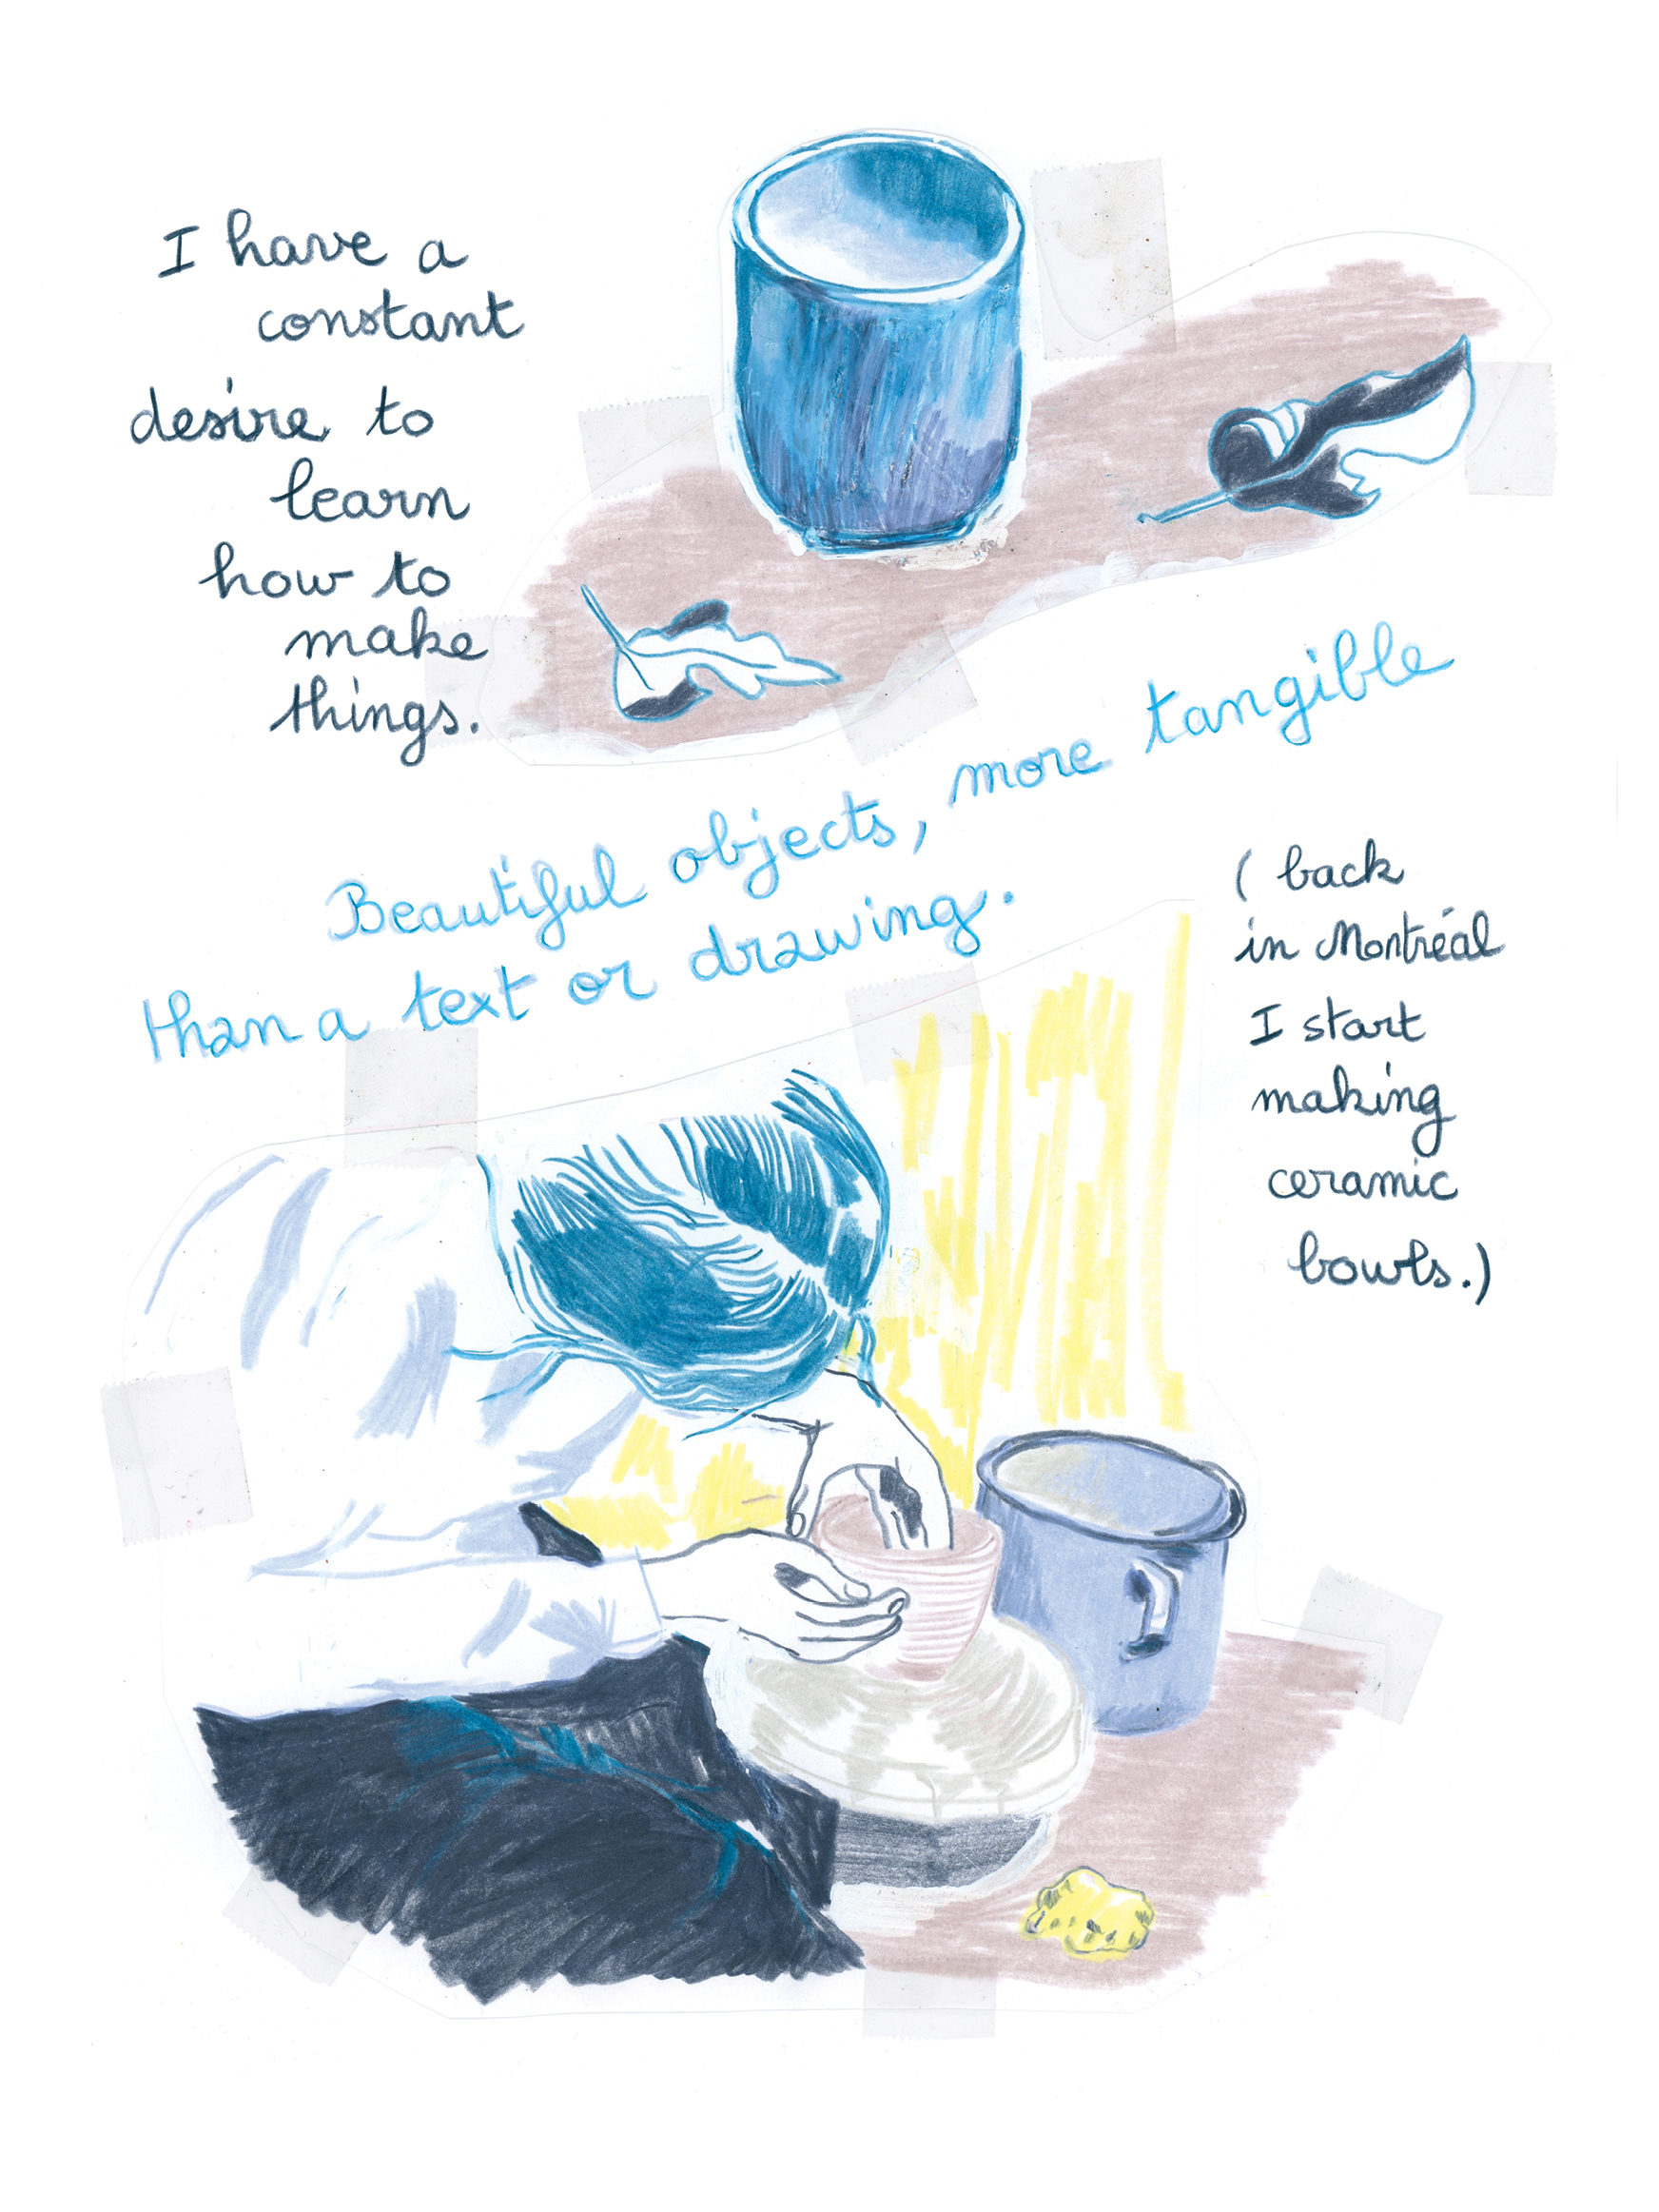 I have a
constant
desire to
learn
how to
make
things.
Beautiful objects, more tangible
than a text or drawing.
( back
in Montréal
I start
making
ceramic
bowls.)